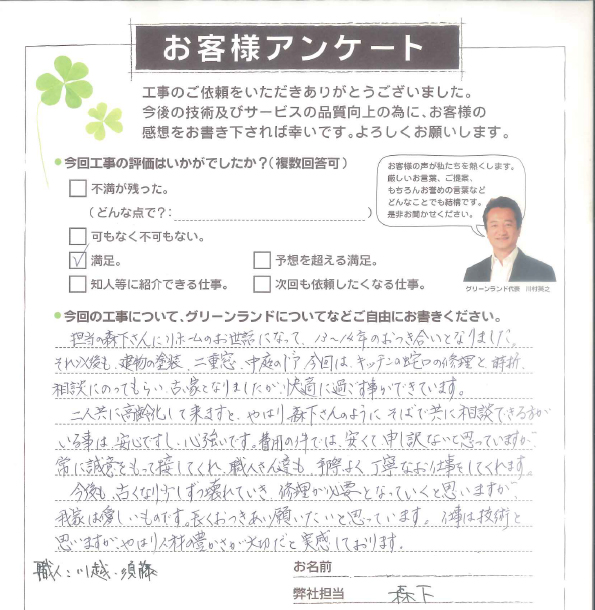 お客様アンケート
工事のご依頼をいただきありがとうございました。
今後の技術及びサービスの品質向上の為に、お客様の
感想をお書き下されば幸いです。よろしくお願いします。
●今回工事の評価はいかがでしたか？（複数回答可）
不満が残った。
（どんな点で？：　）
可もなく不可もない。
満足。
予想を超える満足。
知人等に紹介できる仕事。
次回も依頼したくなる仕事。
お客様の声が私たちを熱くします。
厳しいお言葉、ご提案、
もちろんお誉めの言葉など
どんなことでも結構です。
是非お聞かせください。
グリーンランド代表　川村英之
●今回の工事について、グリーンランドについてなどご自由にお書きください。
担当の森下さんにリホームのお世話になって、13〜14年のおつき合いとなりました。
それ以後も、建物の塗装、二重窓、中庭のドア今回は、キッチンの蛇口の修理と、時折、
相談にのってもらい、古い家となりましたが、快適に過ごす事ができています。
二人共に高齢化して来ますと、やはり森下さんのように そばで共に相談できる方が
いる事は、安心ですし、心強いです。費用の件では、安くて申し訳ないと思っていますが
常に誠意をもって接してくれ、職人さん達も、手際よく丁寧なお仕事をしてくれます。
今後も、古くなり少しずつ壊れていき、修理が必要となっていくと思いますが
我家は愛しいものです。長くおつきあい願いたいと思っています。仕事は技術と
思いますが、やはり人材の豊かさが大切だと実感しております。
職人：川越・須藤
お名前
弊社担当　森下